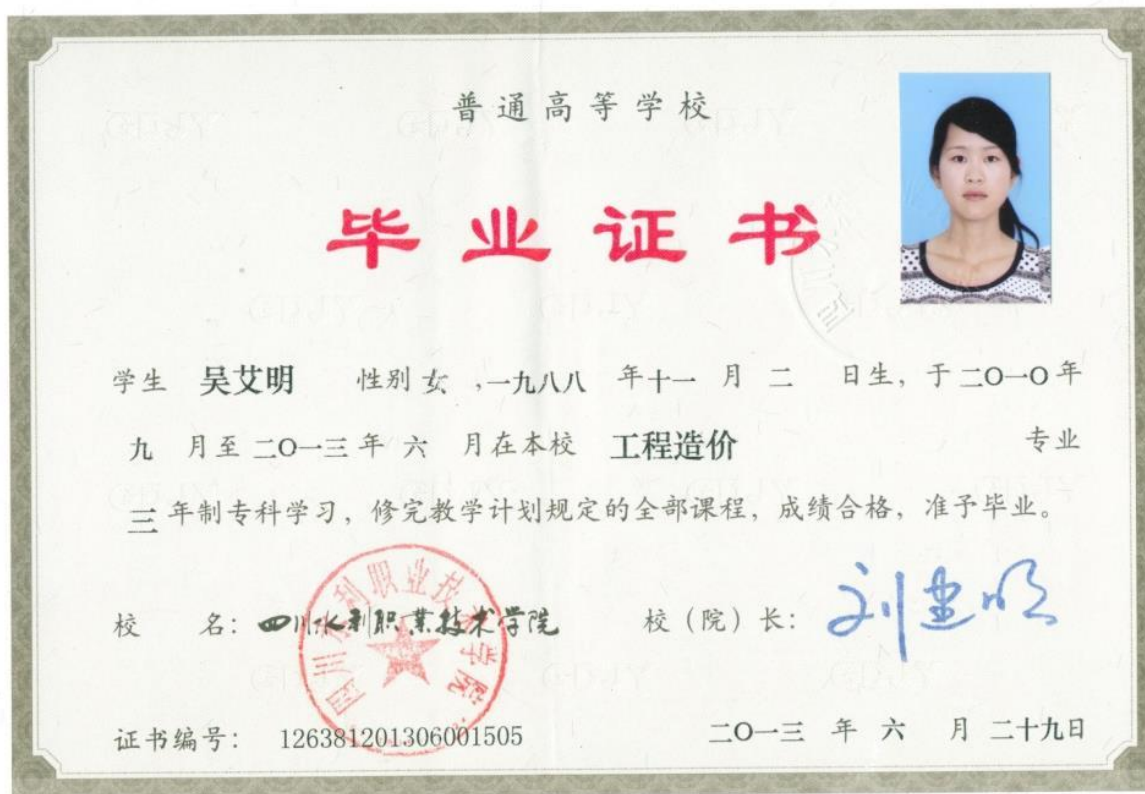 普通高等学校
毕业证书
学生 吴艾明 性别 女 ,一九八八 年十一 月 二 日生，于二〇一〇年
九 月至二〇一三年 六 月在本校 工程造价 专业
三 年制专科学习，修完教学计划规定的全部课程，成绩合格，准予毕业。
校 名：四川水利职业技术学院 校（院）长：刘建明
四川水利职业技术学院
证书编号： 126381201306001505 二〇一三 年 六 月 二十九日